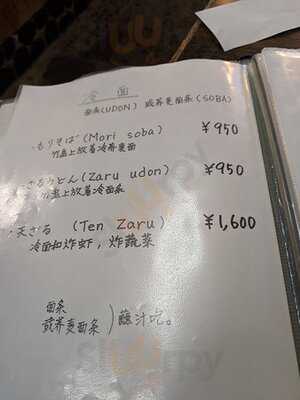 冷面
面条(UDON) 或荞麦面条(SOBA)
・もりそば(Mori soba) ¥950
竹盘上放着冷荞麦面
・ざるうどん(Zaru udon) ¥950
竹盘上放着冷面条
・天ざる (Ten Zaru) ¥1,600
冷面和炸虾，炸蔬菜
面条
或荞麦面条)蘸汁吃。